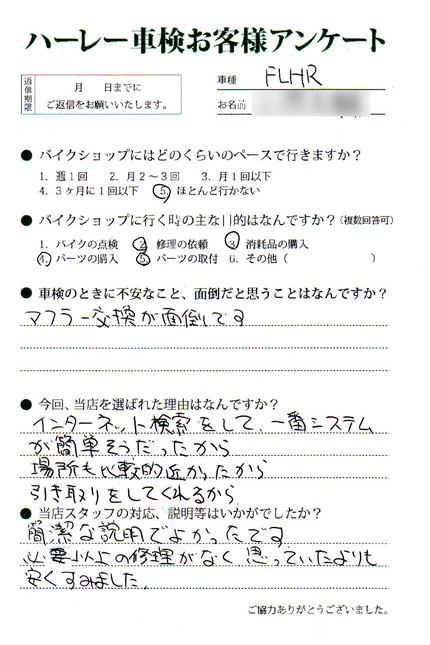 ハーレー車検お客様アンケート
返信期限
月　日までに
ご返信をお願いいたします。
車種 FLHR
お名前
● バイクショップにはどのくらいのペースで行きますか？
1. 週1回　2. 月2〜3回　3. 月1回以下
4. 3ヶ月に1回以下　5. ほとんど行かない
● バイクショップに行く時の主な目的はなんですか？(複数回答可)
1. バイクの点検　2. 修理の依頼　3. 消耗品の購入
4. パーツの購入　5. パーツの取付　6. その他（　　　　）
● 車検のときに不安なこと、面倒だと思うことはなんですか？
マフラー交換が面倒です
● 今回、当店を選ばれた理由はなんですか？
インターネット検索をして、一番システム
が簡単そうだったから
場所も比較的近かったから
引き取りをしてくれるから
● 当店スタッフの対応、説明等はいかがでしたか？
簡潔な説明でよかったです
必要以上の修理がなく思っていたよりも
安くすみました。
ご協力ありがとうございました。